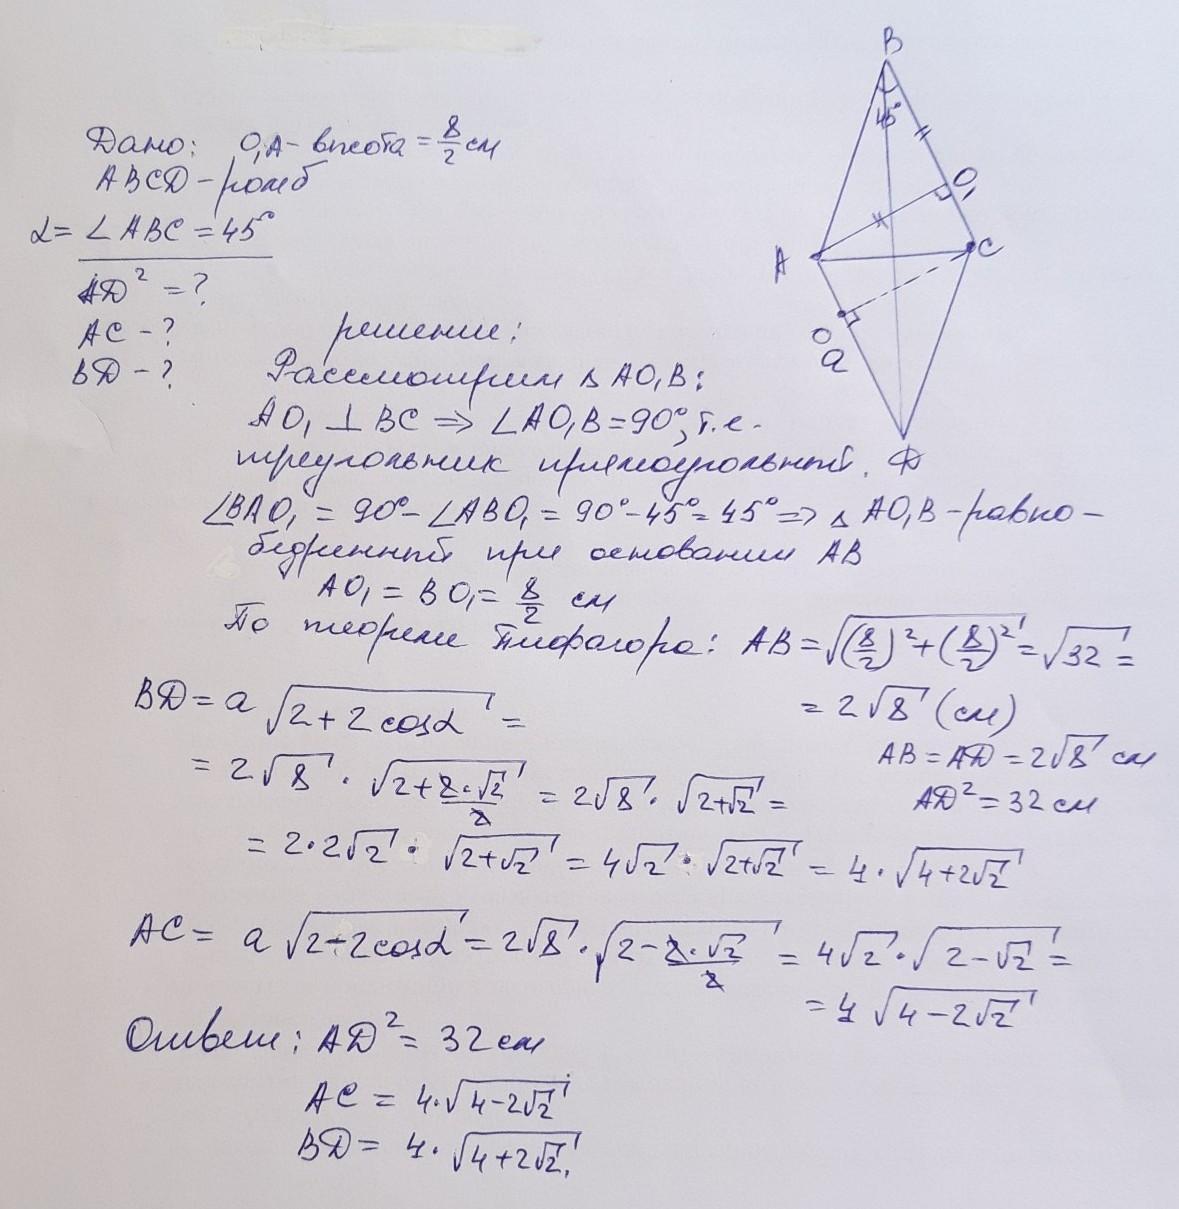 Дано: O₁A - высота = 8/2 см
ABCD - ромб
α = ∠ABC = 45°
AD² = ?
AC - ?
BD - ?
B
45°
O₁
A
C
O
a
D
решение:
Рассмотрим △ AO₁B:
AO₁ ⊥ BC ⇒ ∠AO₁B = 90°, т.е.
треугольник прямоугольный.
∠BAO₁ = 90° - ∠ABO₁ = 90° - 45° = 45° ⇒ △ AO₁B - равно-
бедренный при основании AB
AO₁ = BO₁ = 8/2 см
По теореме Пифагора: AB = √((8/2)² + (8/2)²) = √32 =
= 2√8 (см)
AB = AD = 2√8 см
AD² = 32 см
BD = a √(2 + 2cosα) =
= 2√8 · √(2 + 2·√2/2) = 2√8 · √(2+√2) =
= 2·2√2 · √(2+√2) = 4√2 · √(2+√2) = 4 · √(4+2√2)
AC = a √(2-2cosα) = 2√8 · √(2 - 2·√2/2) = 4√2 · √(2-√2) =
= 4 √(4-2√2)
Ответ: AD² = 32 см
AC = 4·√(4-2√2)
BD = 4·√(4+2√2).